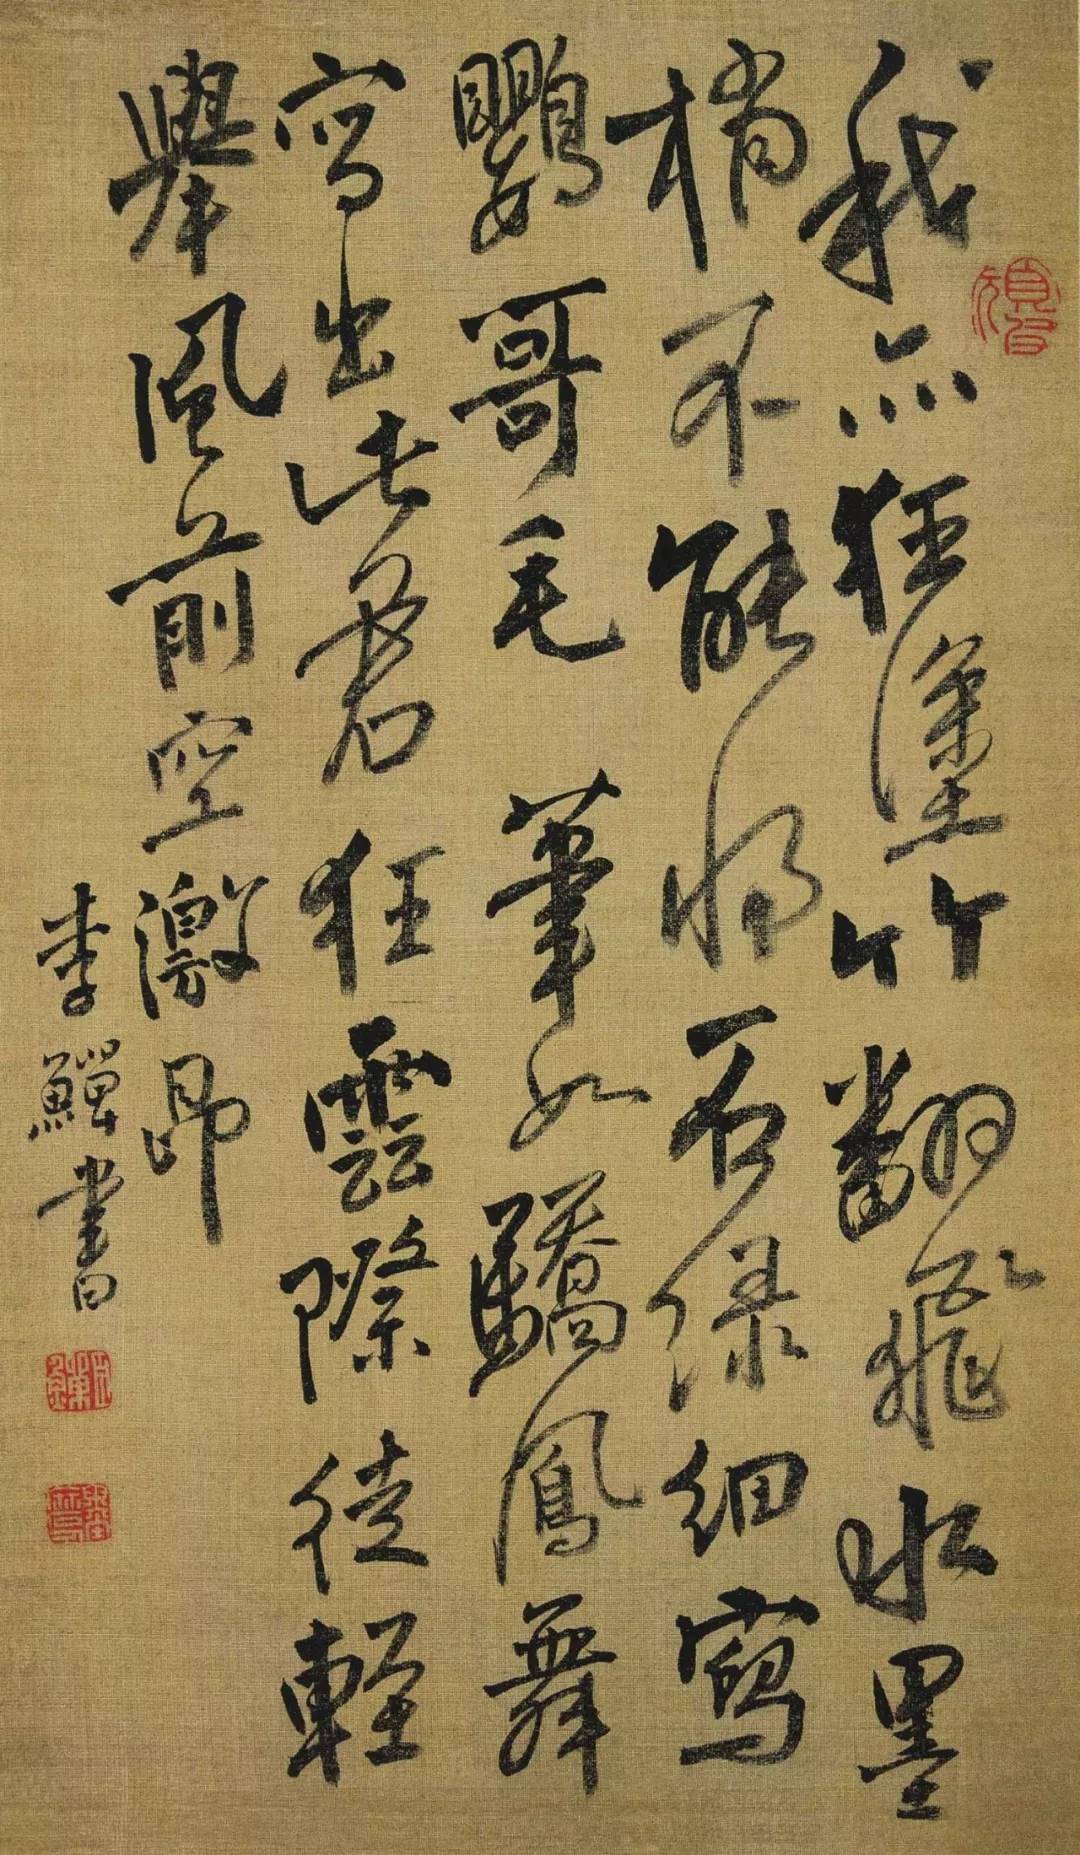 我亦狂塗竹翻飛水墨
梢不能將石綠細寫
鸚哥毛筆如驕鳳舞
寫出此君狂雲際徒輕
舉風前空激昂
李鱓書